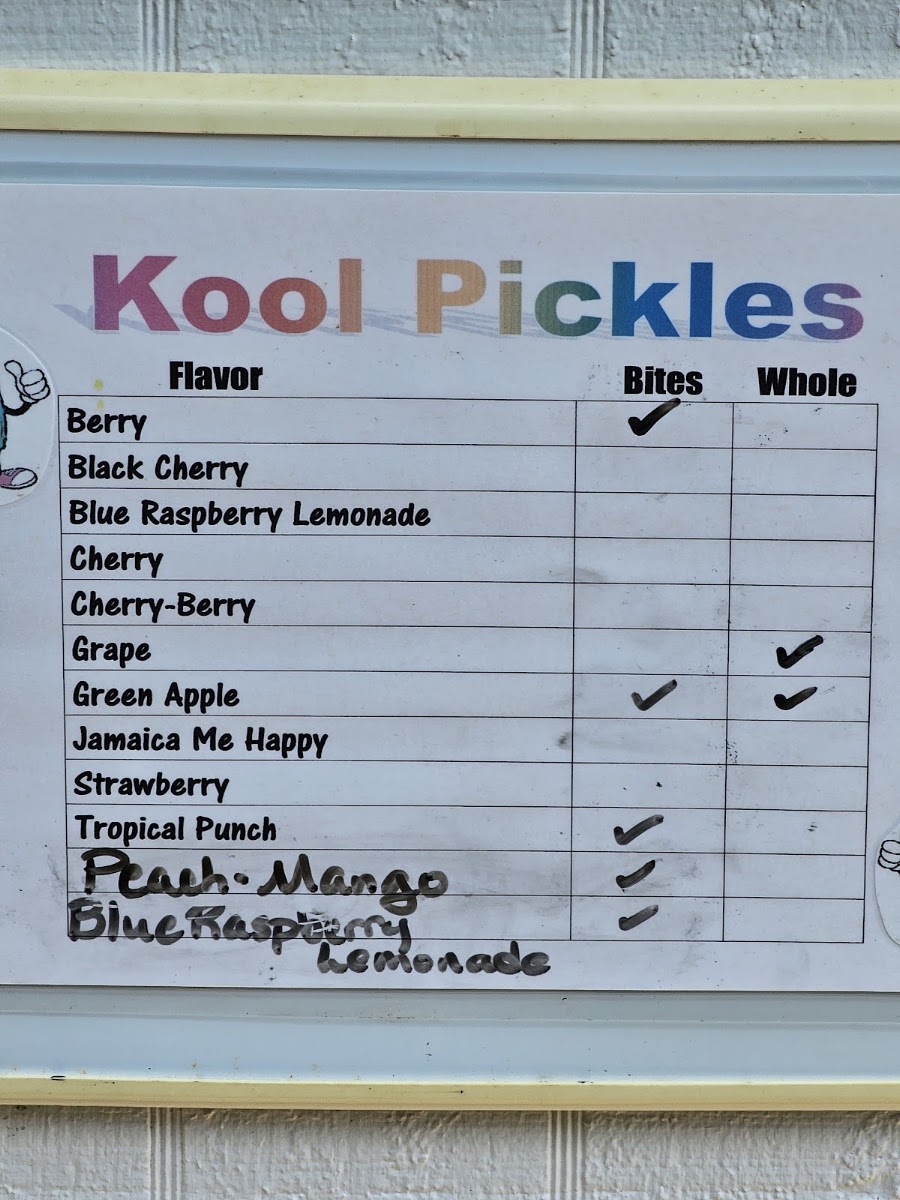 Kool Pickles
Flavor Bites Whole
Berry ✓
Black Cherry
Blue Raspberry Lemonade
Cherry
Cherry-Berry
Grape ✓
Green Apple ✓ ✓
Jamaica Me Happy
Strawberry
Tropical Punch ✓
Peach-Mango ✓
Blue Raspberry ✓
Lemonade